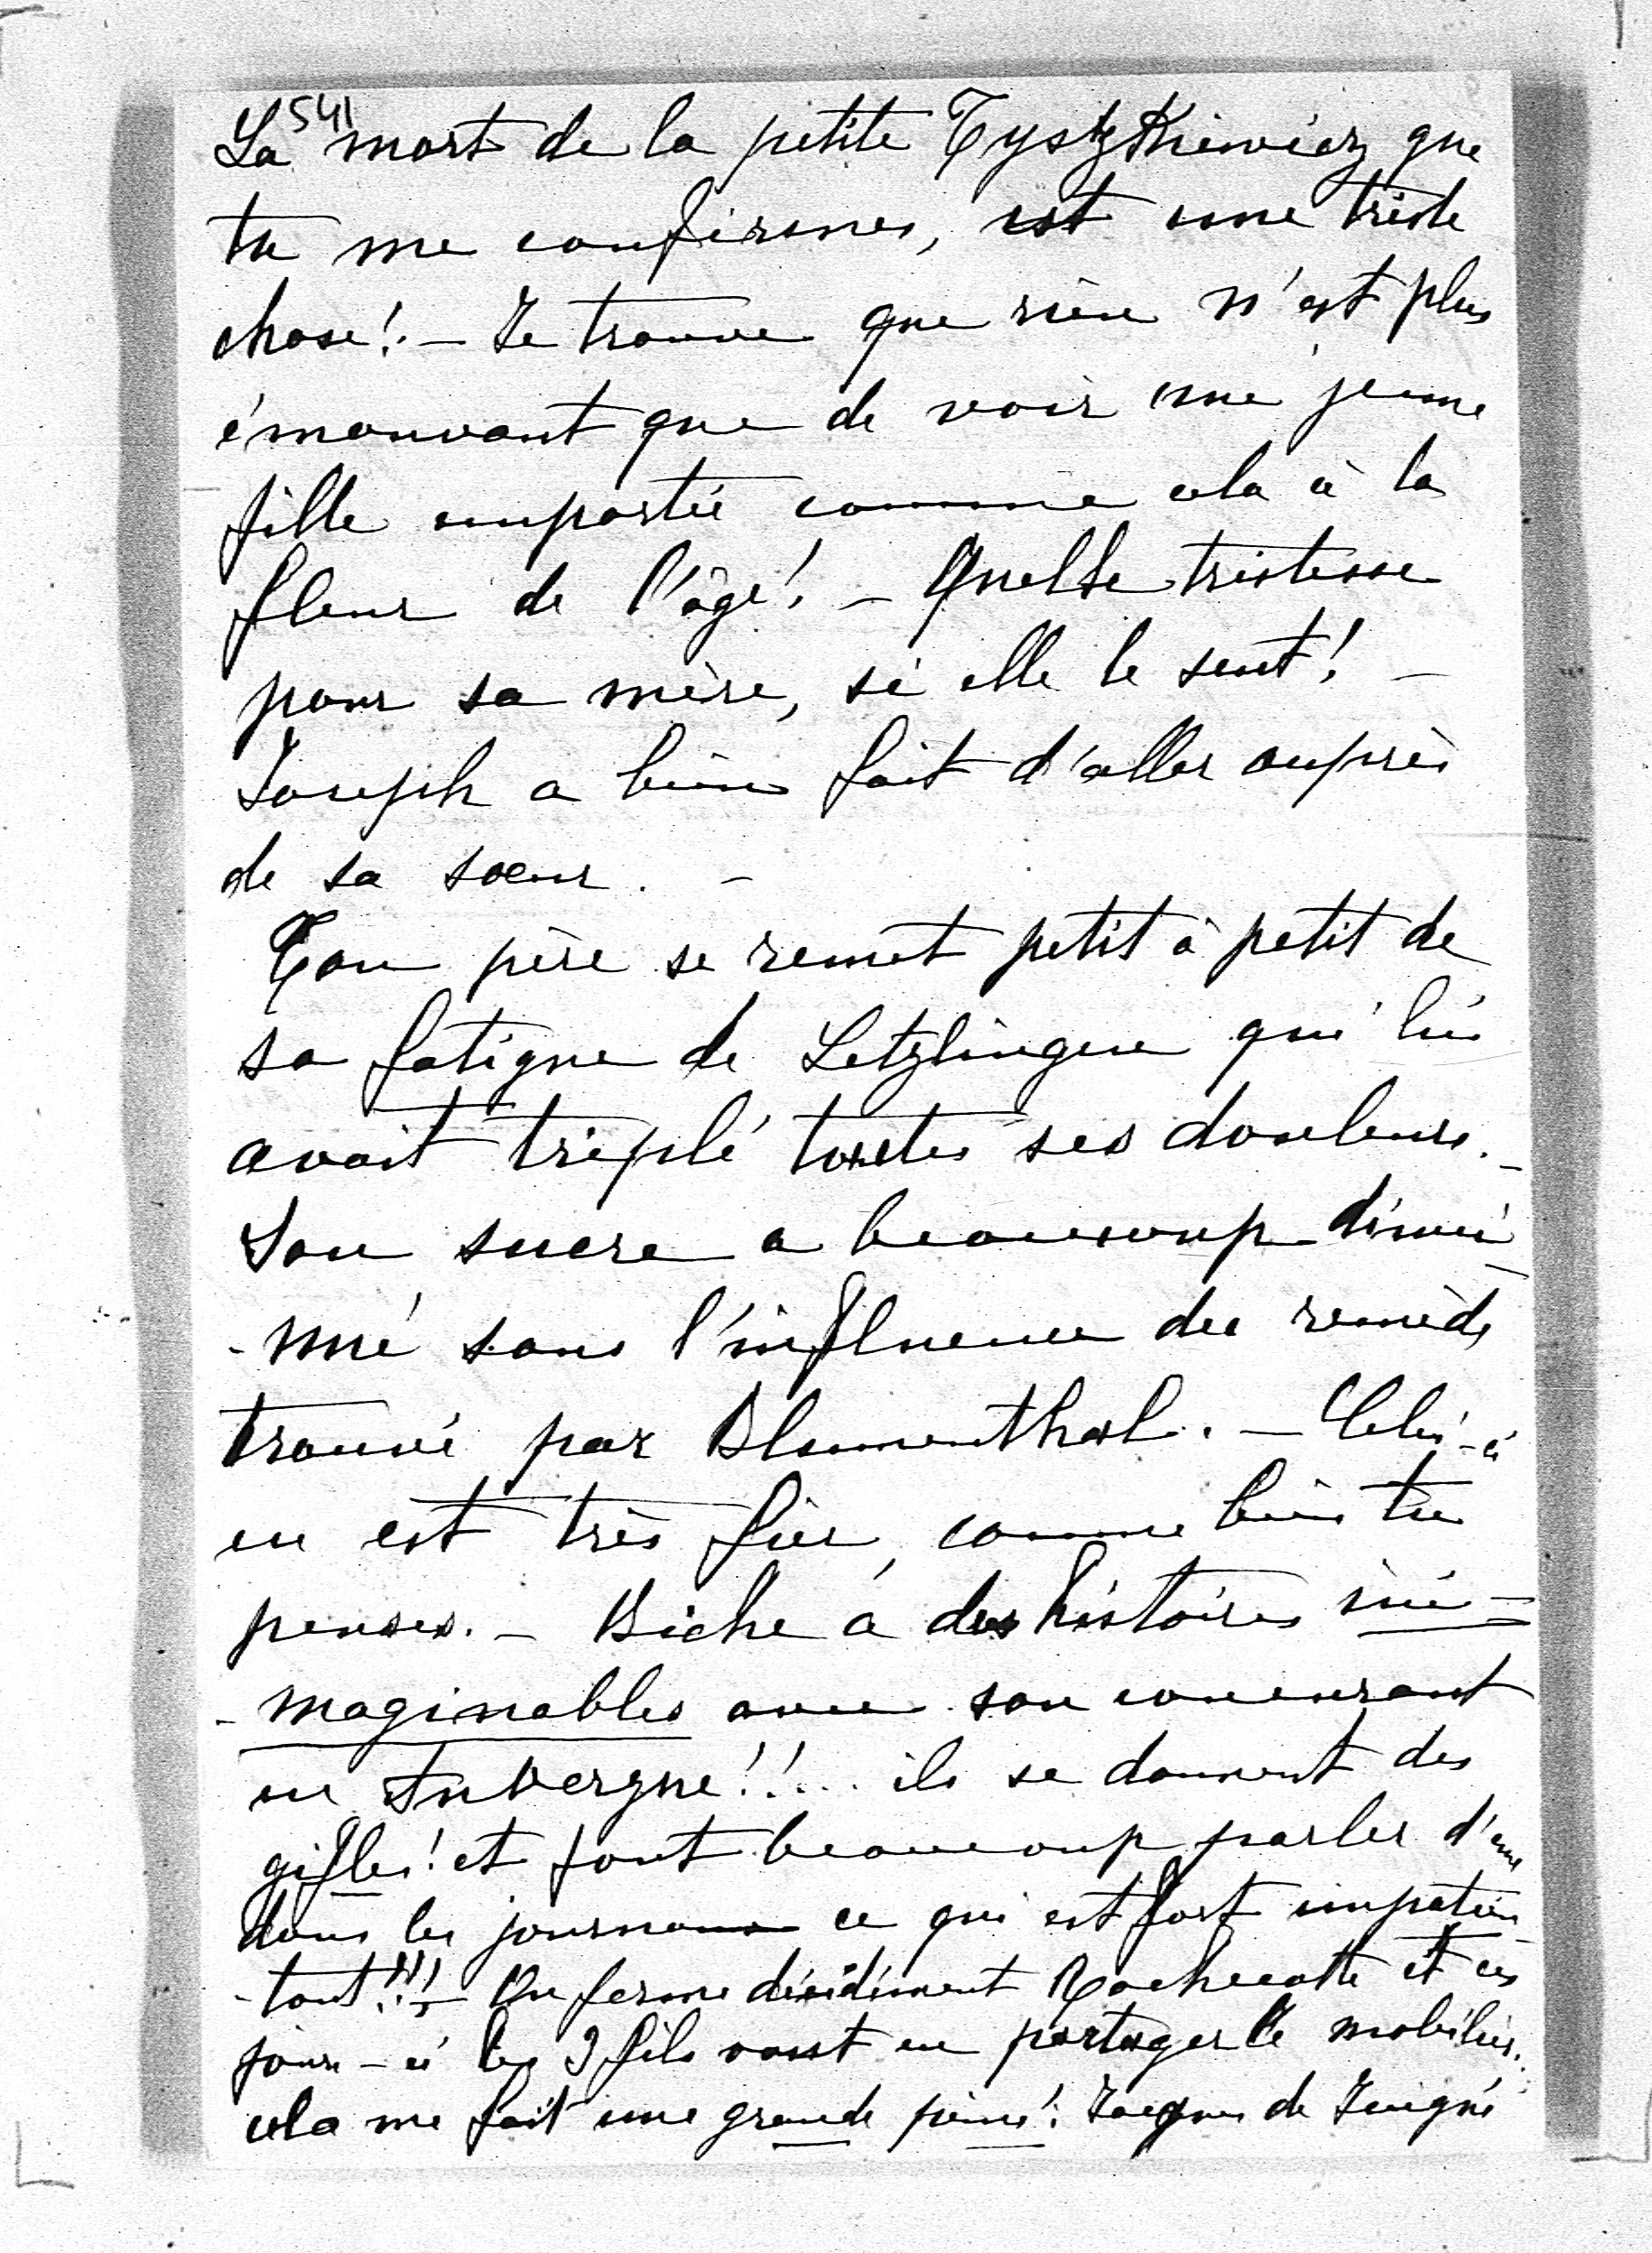 541
La mort de la petite Tyszkiewicz que
tu me confirmes, est une triste
chose! - Je trouve que rien n'est plus
émouvant que de voir une jeune
fille emportée comme cela à la
fleur de l'âge! - Quelle tristesse
pour sa mère, si elle le sent! -
Joseph a bien fait d'aller auprès
de sa soeur. -
Ton père se remet petit à petit de
sa fatigue de Letzlingen qui lui
avait triplé toutes ses douleurs. -
Son sucre a beaucoup dimi-
-nué sous l'influence du remède
trouvé par Blumenthal. - Celui-ci
en est très fier, comme bien tu
penses. - Biche a des histoires ini-
-maginables avec son concurrent
en Auvergne!!... ils se donnent des
gifles! et font beaucoup parler d'eux
dans les journaux ce qui est fort impatien-
-tant!!! - On ferme décidément Rochecotte et ces
jours-ci les 3 fils vont en partager le mobilier.
cela me fait une grande peine! Jacques de Juigné